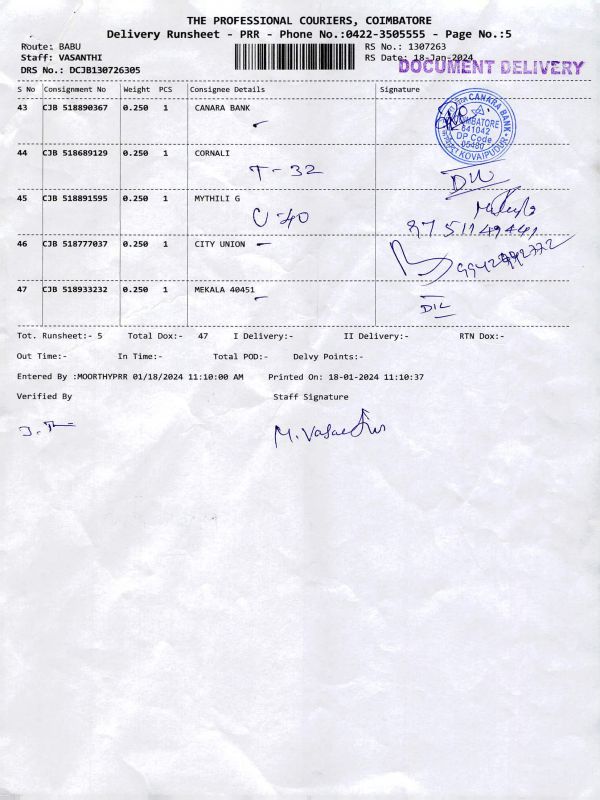 THE PROFESSIONAL COURIERS, COIMBATORE
Delivery Runsheet - PRR - Phone No.:0422-3505555 - Page No.:5
Route: BABU RS No.: 1307263
Staff: VASANTHI RS Date: 18-Jan-2024
DRS No.: DCJB130726305 DOCUMENT DELIVERY
S No Consignment No Weight PCS Consignee Details Signature
43 CJB 518890367 0.250 1 CANARA BANK
CANARA BANK
COIMBATORE
641042
DP Code
05480
KOVAIPUDUR
44 CJB 518689129 0.250 1 CORNALI
T-32
45 CJB 518891595 0.250 1 MYTHILI G
U-40
9751149441
46 CJB 518777037 0.250 1 CITY UNION
47 CJB 518933232 0.250 1 MEKALA 40451
Tot. Runsheet:- 5 Total Dox:- 47 I Delivery:- II Delivery:- RTN Dox:-
Out Time:- In Time:- Total POD:- Delvy Points:-
Entered By :MOORTHYPRR 01/18/2024 11:10:00 AM Printed On: 18-01-2024 11:10:37
Verified By Staff Signature